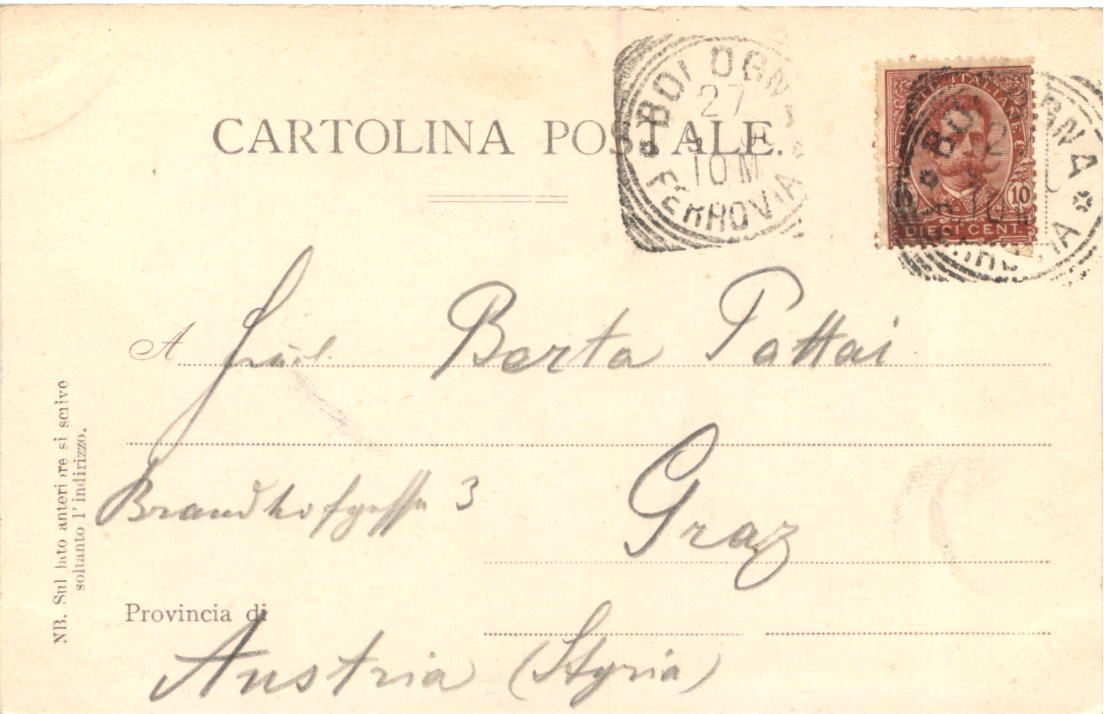 CARTOLINA POSTALE.
BOLOGNA
27
10 M
FERROVIA
POSTE ITALIANE
10
DIECI CENT.
BOLOGNA
FERROVIA
A Fräul. Berta Pattai
Brandhofgasse 3
Graz
Provincia di
Austria (Styria)
NB. Sul lato anteriore si scrive
soltanto l'indirizzo.